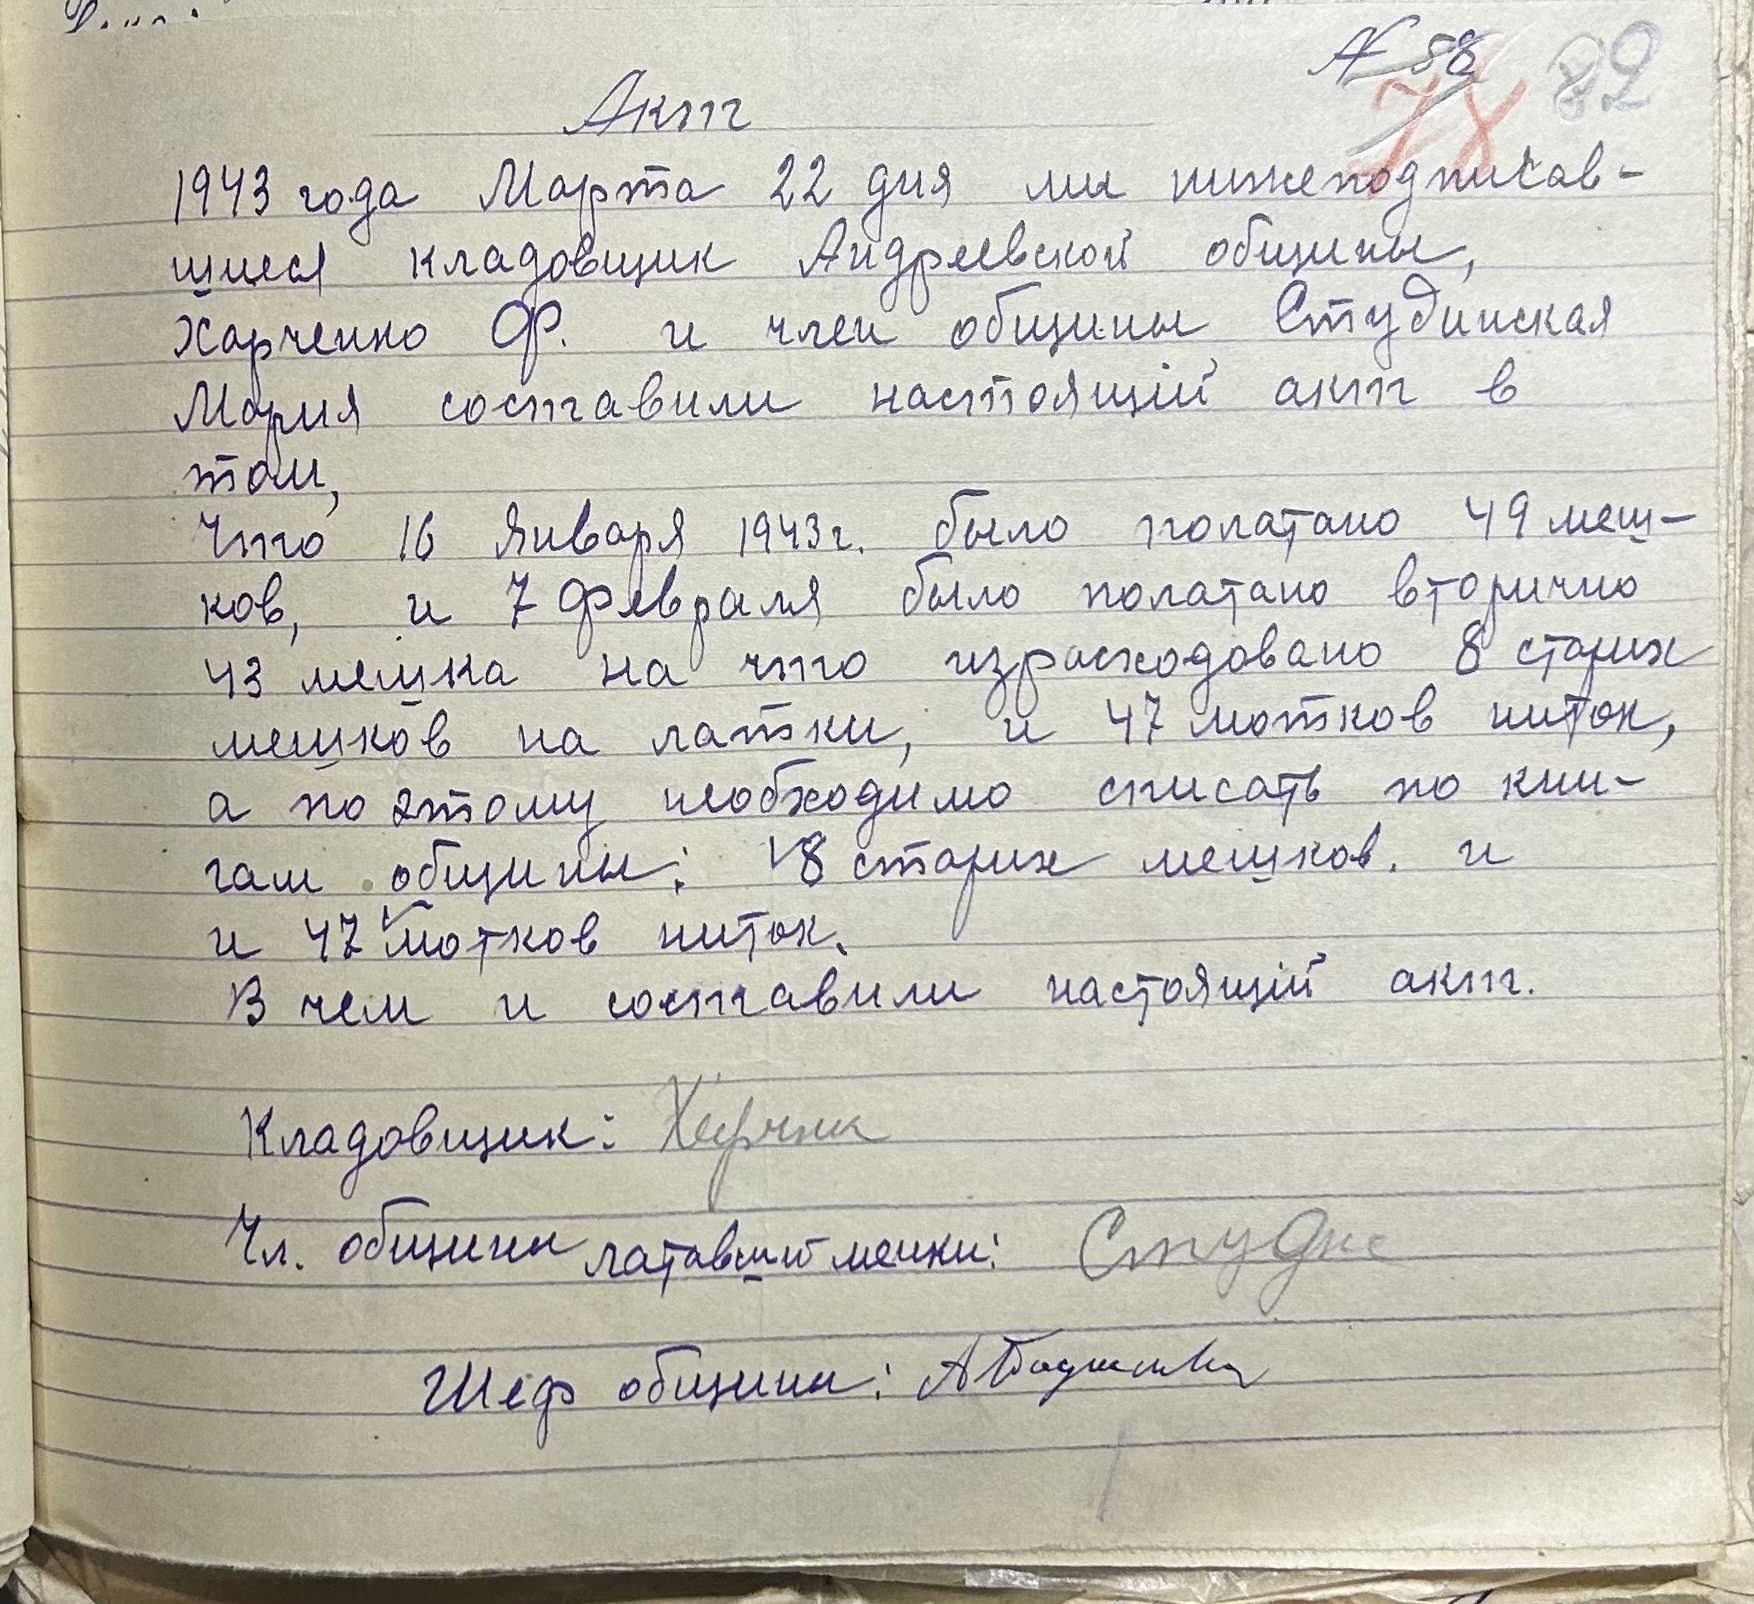 № 58
78 82
Акт
1943 года Марта 22 дня ми нижеподписав-
шиеся кладовщик Андреевской общины,
Харченко Ф. и член общины Студинская
Мария составили настоящій акт в
том,
Что 16 Января 1943г. было полатано 49 меш-
ков, и 7 февраля было полатано вторично
43 мешка на что израсходовано 8 старих
мешков на латки, и 47 мотков ниток,
а по этому необходимо списать по кни-
гам общины: 8 старих мешков. и
и 47 мотков ниток.
В чем и составили настоящій акт.
Кладовщик:
Чл. общины латавший мешки: Студ
Шеф общины: